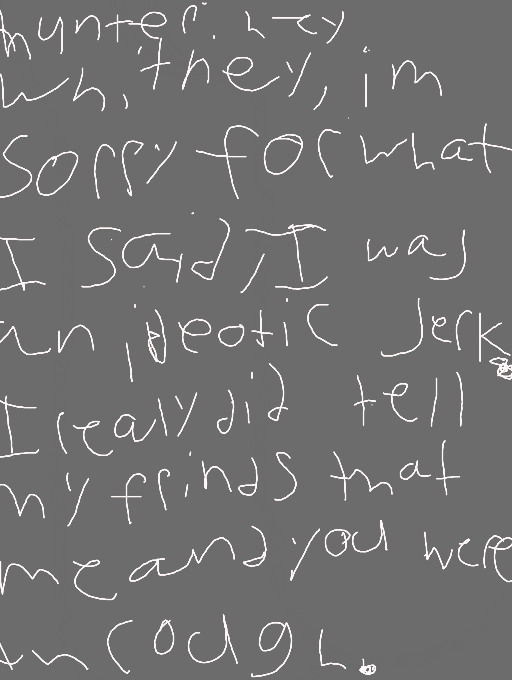 hunter. hey
whitney, im
sorry for what
I said, I was
an ideotic Jerk
I realy did tell
my frinds that
me and you were